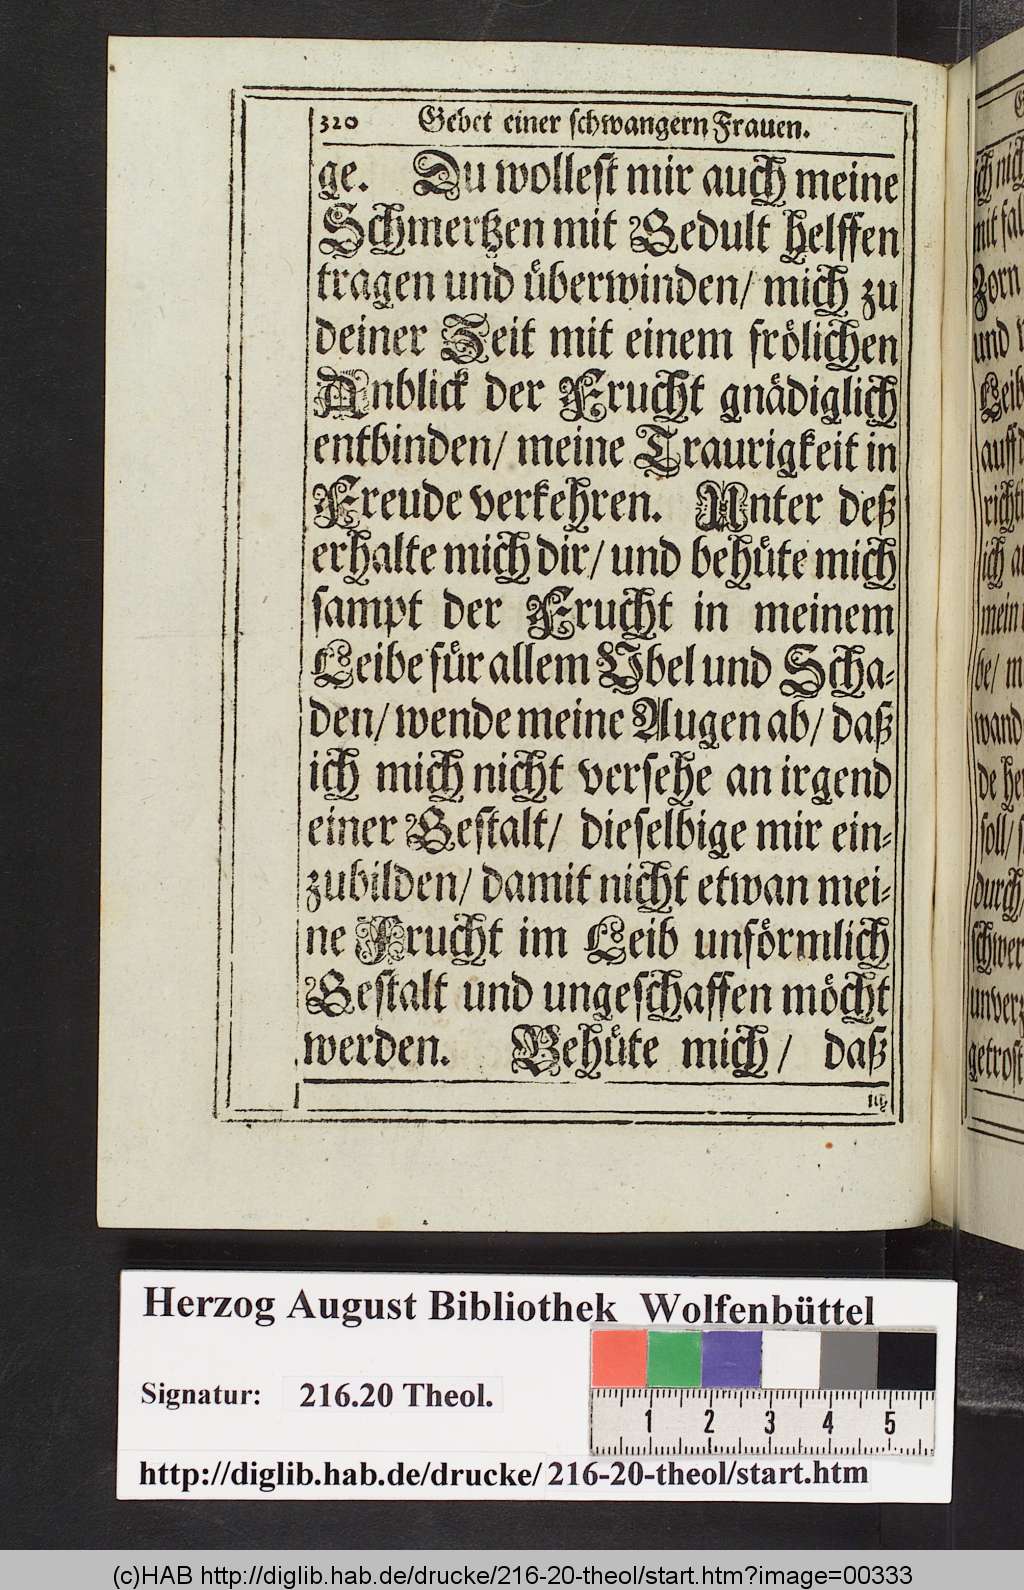 320 Gebet einer schwangern Frauen.
ge. Du wollest mir auch meine
Schmertzen mit Gedult helffen
tragen und überwinden/ mich zu
deiner Zeit mit einem frölichen
Anblick der Frucht gnädiglich
entbinden/ meine Traurigkeit in
Freude verkehren. Unter deß
erhalte mich dir/ und behüte mich
sampt der Frucht in meinem
Leibe für allem Ubel und Scha-
den/ wende meine Augen ab/ daß
ich mich nicht versehe an irgend
einer Gestalt/ dieselbige mir ein-
zubilden/ damit nicht etwan mei-
ne Frucht im Leib unförmlich
Gestalt und ungeschaffen möcht
werden. Behüte mich/ daß
ich nich
mit fal
Zorn
und
Leib
auff
richt
ich a
mein
be/ m
wand
de he
soll/
durch
schwer
unverz
getrost
Herzog August Bibliothek Wolfenbüttel
Signatur: 216.20 Theol.
1 2 3 4 5
http://diglib.hab.de/drucke/216-20-theol/start.htm
(c)HAB http://diglib.hab.de/drucke/216-20-theol/start.htm?image=00333